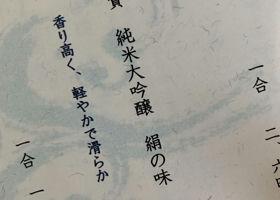 一合 二、六
賀 純米大吟醸 絹の味
香り高く、軽やかで滑らか
一合 一